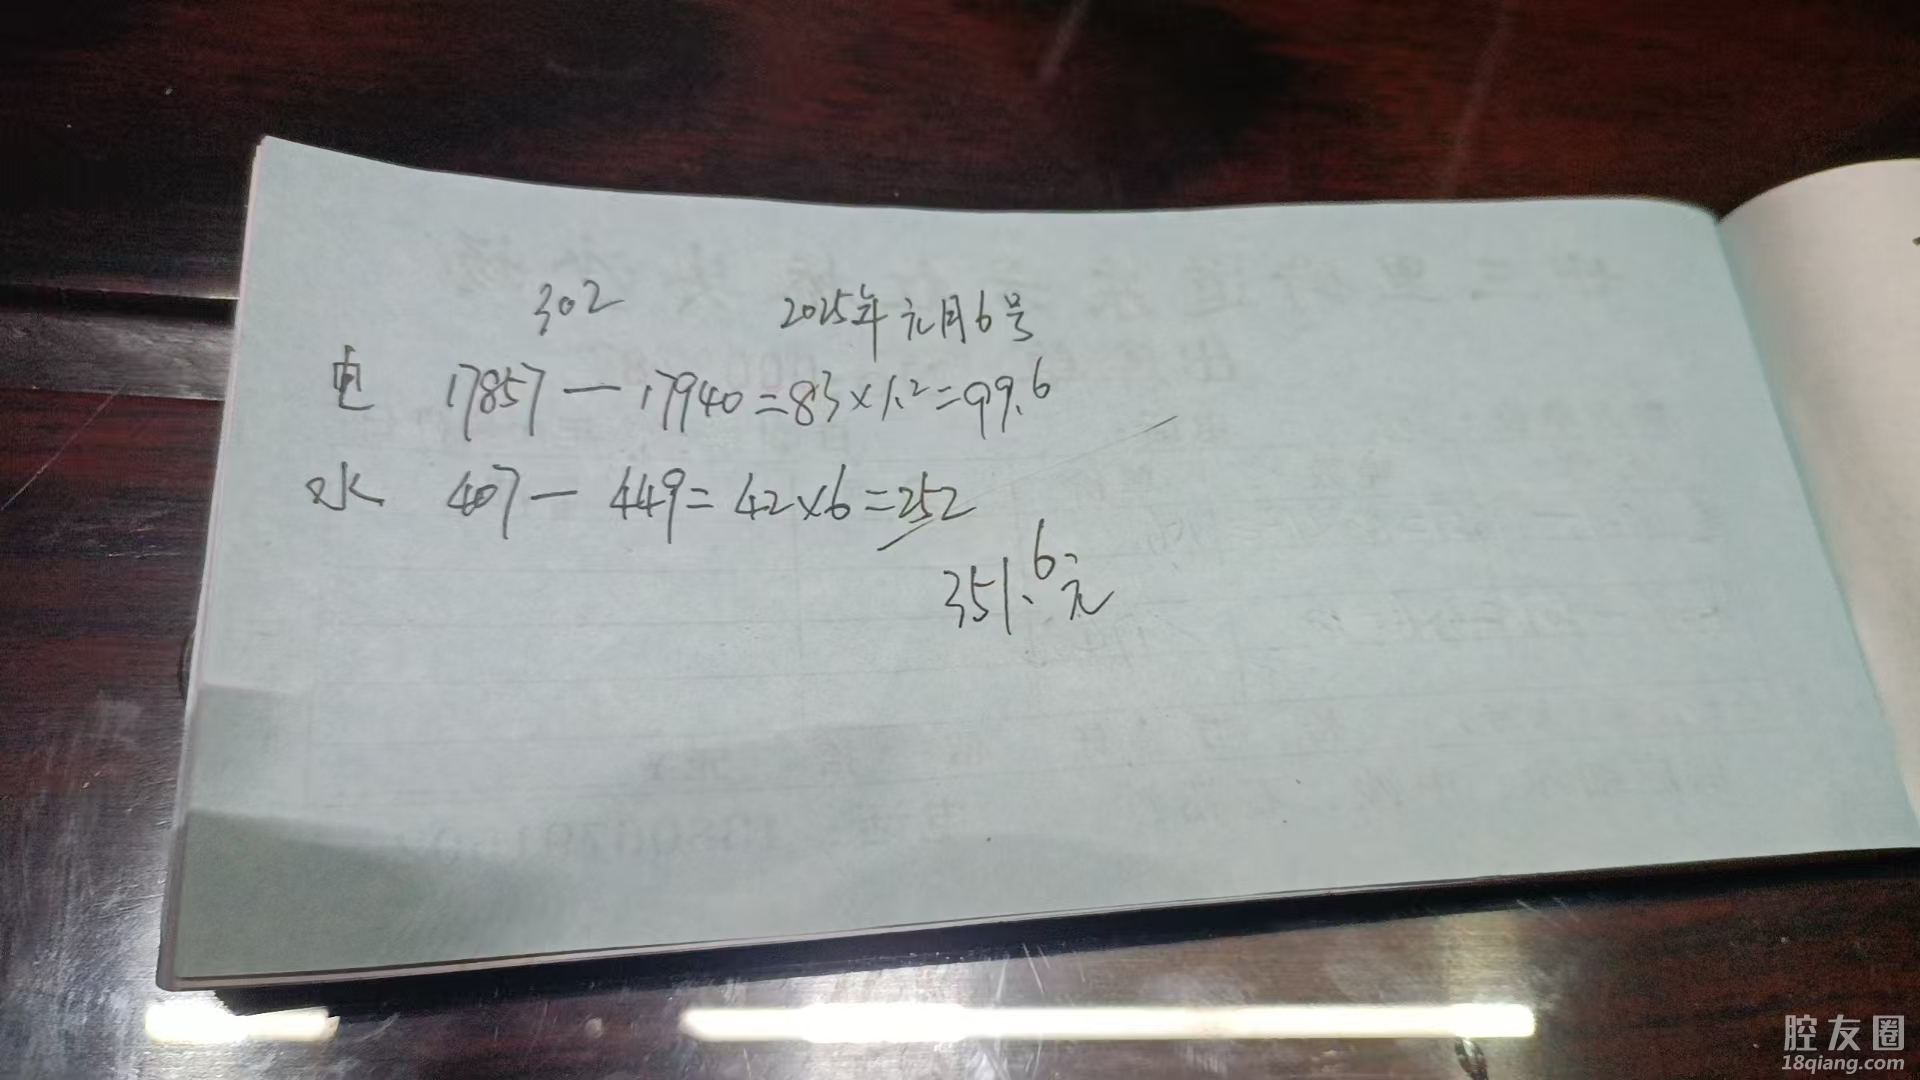 302 2025年元月6号
电 17857 — 17940=83×1.2=99.6
水 407 — 449=42×6=252
351.6元
腔友圈
18qiang.com